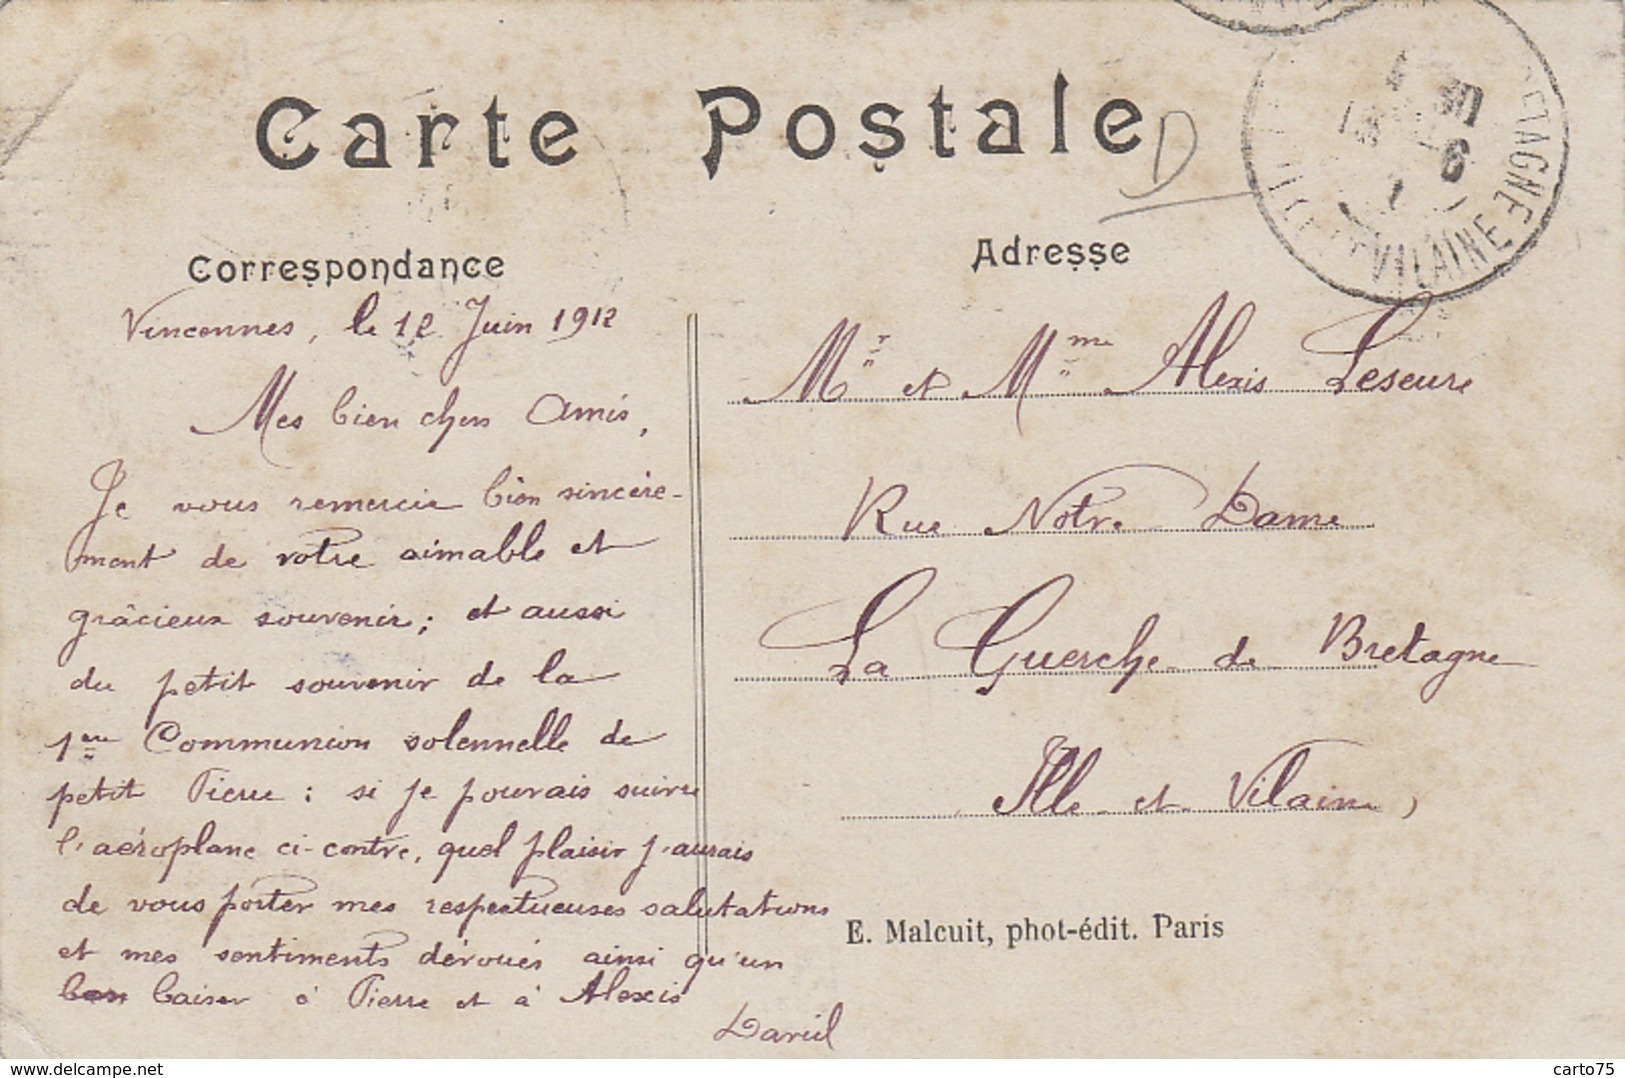 Carte Postale
D
BRETAGNE
VILAINE
6
Correspondance
Adresse
Vincennes, le 12 Juin 1912
Mes bien chers Amis,
Je vous remercie bien sincère-
ment de votre aimable et
grâcieux souvenir; et aussi
du petit souvenir de la
1ère Communion solennelle de
petit Pierre : si je pouvais suivre
l'aéroplane ci-contre, quel plaisir j'aurais
de vous porter mes respectueuses salutations
et mes sentiments dévoués ainsi qu'un
bon baiser à Pierre et à Alexis
Mr et Mme Alexis Leseure
Rue Notre Dame
La Guerche de Bretagne
Ille et Vilaine,
E. Malcuit, phot-édit. Paris
Delcampe.net
carto75